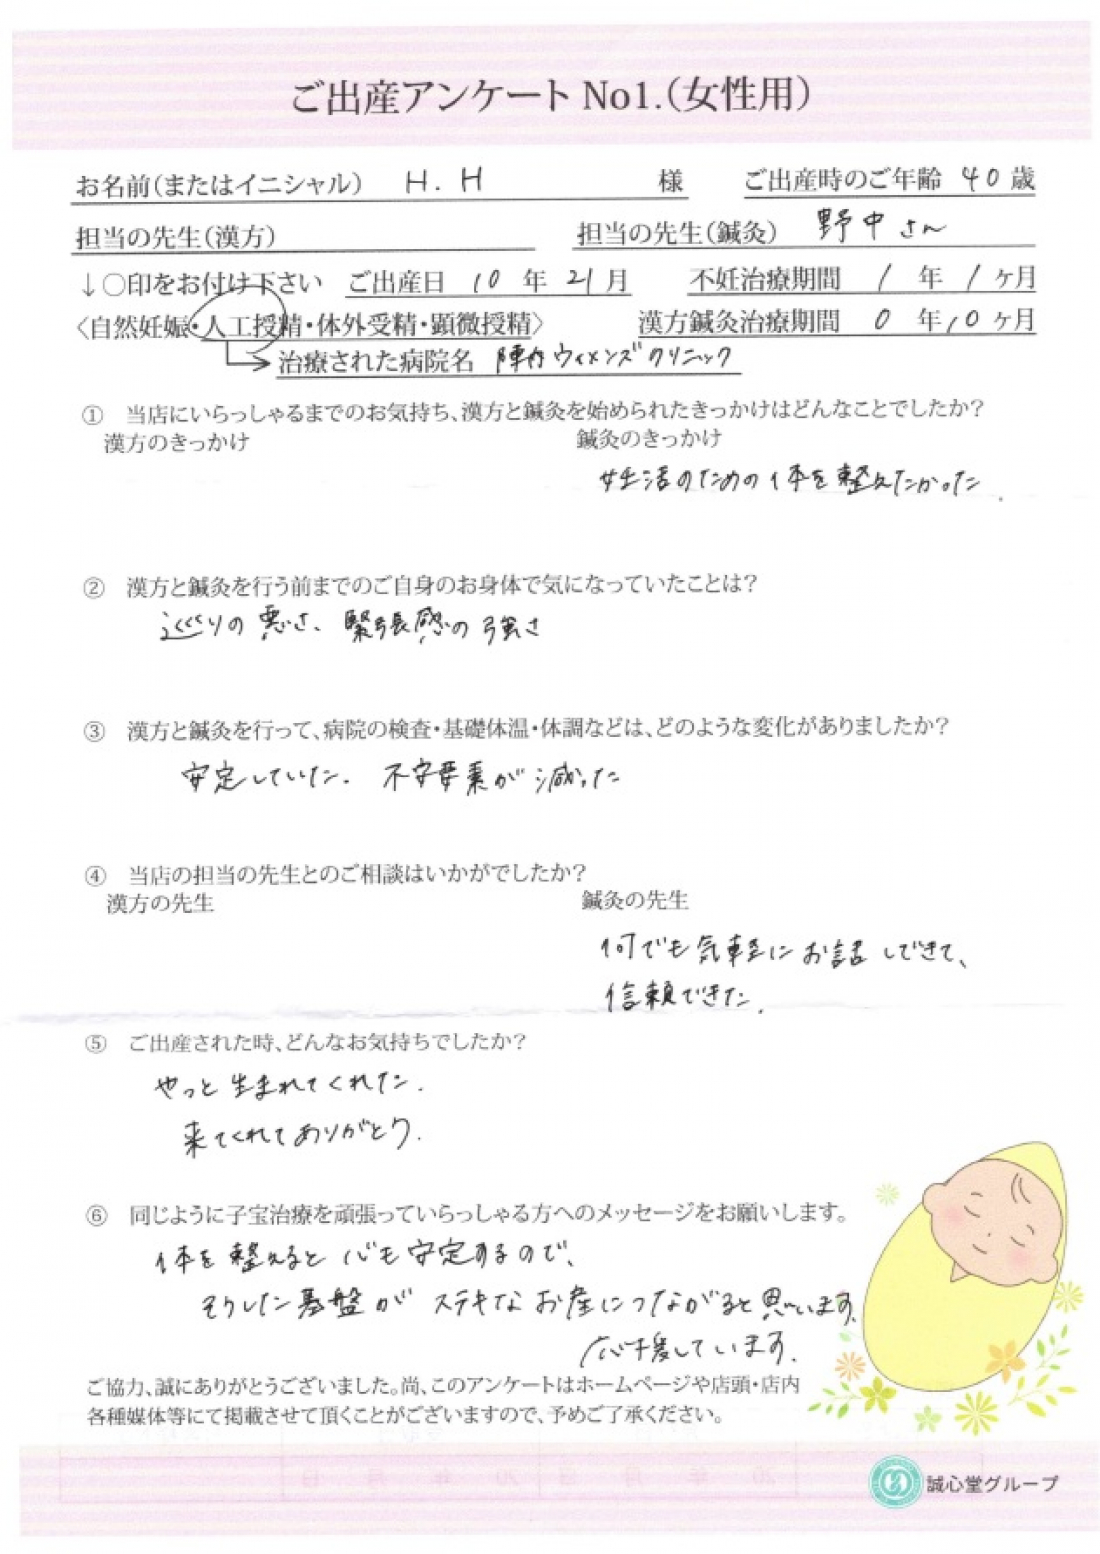 ご出産アンケート No1.(女性用)
お名前(またはイニシャル) H.H 様 ご出産時のご年齢 40歳
担当の先生(漢方) 担当の先生(鍼灸) 野中さん
↓○印をお付け下さい ご出産日 10年 21月 不妊治療期間 1年 1ヶ月
〈自然妊娠・人工授精・体外受精・顕微授精〉 漢方鍼灸治療期間 0年10ヶ月
治療された病院名 陣内ウィメンズクリニック
① 当店にいらっしゃるまでのお気持ち、漢方と鍼灸を始められたきっかけはどんなことでしたか?
漢方のきっかけ 鍼灸のきっかけ
妊活のための体を整えたかった.
② 漢方と鍼灸を行う前までのご自身のお身体で気になっていたことは?
巡りの悪さ、緊張感の強さ
③ 漢方と鍼灸を行って、病院の検査・基礎体温・体調などは、どのような変化がありましたか?
安定していた. 不安要素が減った
④ 当店の担当の先生とのご相談はいかがでしたか?
漢方の先生 鍼灸の先生
何でも気軽にお話しできて、
信頼できた.
⑤ ご出産された時、どんなお気持ちでしたか?
やっと生まれてくれた.
来てくれてありがとう.
⑥ 同じように子宝治療を頑張っていらっしゃる方へのメッセージをお願いします。
体を整えると心も安定するので、
そうした基盤がステキなお産につながると思います.
応援しています.
ご協力、誠にありがとうございました。尚、このアンケートはホームページや店頭・店内
各種媒体等にて掲載させて頂くことがございますので、予めご了承ください。
誠心堂グループ